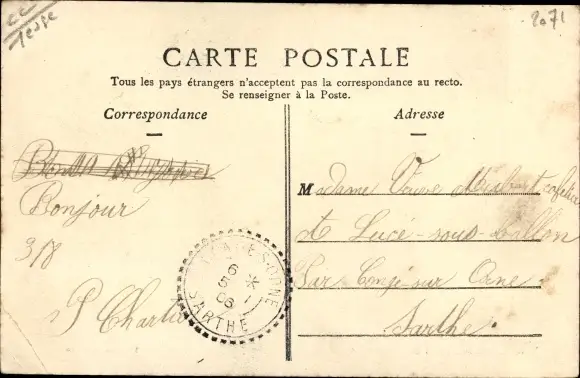 2071
CARTE POSTALE
Tous les pays étrangers n'acceptent pas la correspondance au recto.
Se renseigner à la Poste.
Correspondance
Adresse
Bonjour
3/8
P Chartier
Madame Veuve
à Lucé-sous-Ballon
Par Congé-sur Orne
Sarthe.
6
5
06
SARTHE